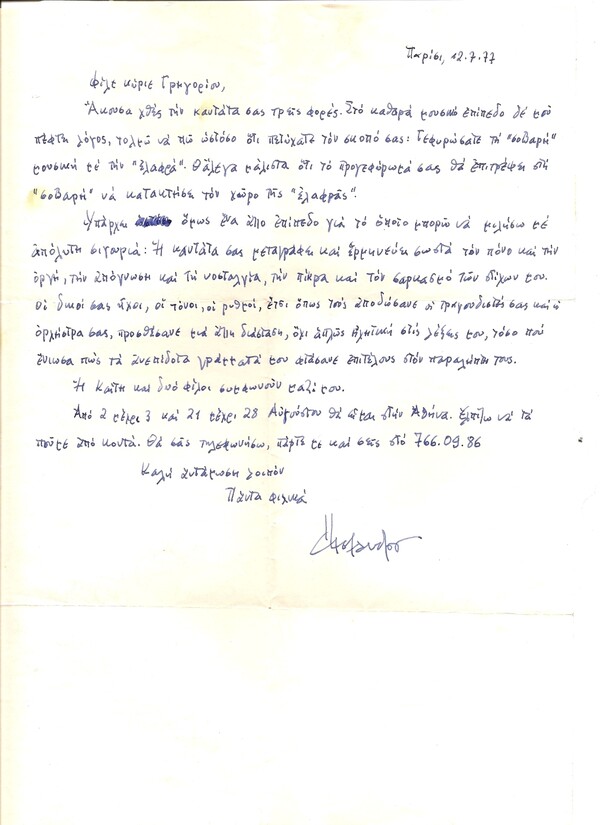 Παρίσι, 12.7.77
Φίλε κύριε Γρηγορίου,
Ἄκουσα χθὲς τὴν καντάτα σας τρεῖς φορές. Στὸ καθαρὰ μουσικὸ ἐπίπεδο δέ μοῦ
πέφτει λόγος, τολμῶ νὰ πῶ ὡστόσο ὅτι πετύχατε τὸν σκοπό σας: Γεφυρώσατε τὴ "σοβαρὴ"
μουσικὴ μὲ τὴν "ἐλαφρά". Θἄλεγα μάλιστα ὅτι τὸ προγεφύρωμά σας θὰ ἐπιτρέψει στὴ
"σοβαρὴ" νὰ κατακτήσει τὸν χῶρο τῆς "ἐλαφρᾶς".
Ὑπάρχει ὅμως ἕνα ἄλλο ἐπίπεδο γιὰ τὸ ὁποῖο μπορῶ νὰ μιλήσω μὲ
ἀπόλυτη σιγουριά: Ἡ καντάτα σας μεταγράφει καὶ ἑρμηνεύει σωστὰ τὸν πόνο καὶ τὴν
ὀργή, τὴν ἀπόγνωση καὶ τὴ νοσταλγία, τὴν πίκρα καὶ τὸν σαρκασμὸ τῶν στίχων μου.
Οἱ δικοί σας ἦχοι, οἱ τόνοι, οἱ ρυθμοί, ἔτσι ὅπως τοὺς ἀποδώσανε οἱ τραγουδιστές σας καὶ ἡ
ὀρχήστρα σας, προσθέσανε μιὰ ἄλλη διάσταση, ὄχι ἁπλῶς ἠχητικὴ στὶς λέξεις μου, τόσο ποὺ
ἔνιωσα πὼς τὰ ἀνεπίδοτα γράμματά μου φτάσανε ἐπιτέλους στὸν παραλήπτη τους.
Ἡ Καίτη καὶ δυὸ φίλοι συμφωνοῦν μαζί μου.
Ἀπὸ 2 μέχρι 3 καὶ 21 μέχρι 28 Αὐγούστου θὰ εἶμαι στὴν Ἀθήνα. Ἐλπίζω νὰ τὰ
ποῦμε ἀπὸ κοντά. Θὰ σᾶς τηλεφωνήσω, πάρτε με καὶ σεῖς στὸ 766.09.86
Καλὴ ἀντάμωση λοιπὸν
Πάντα φιλικά